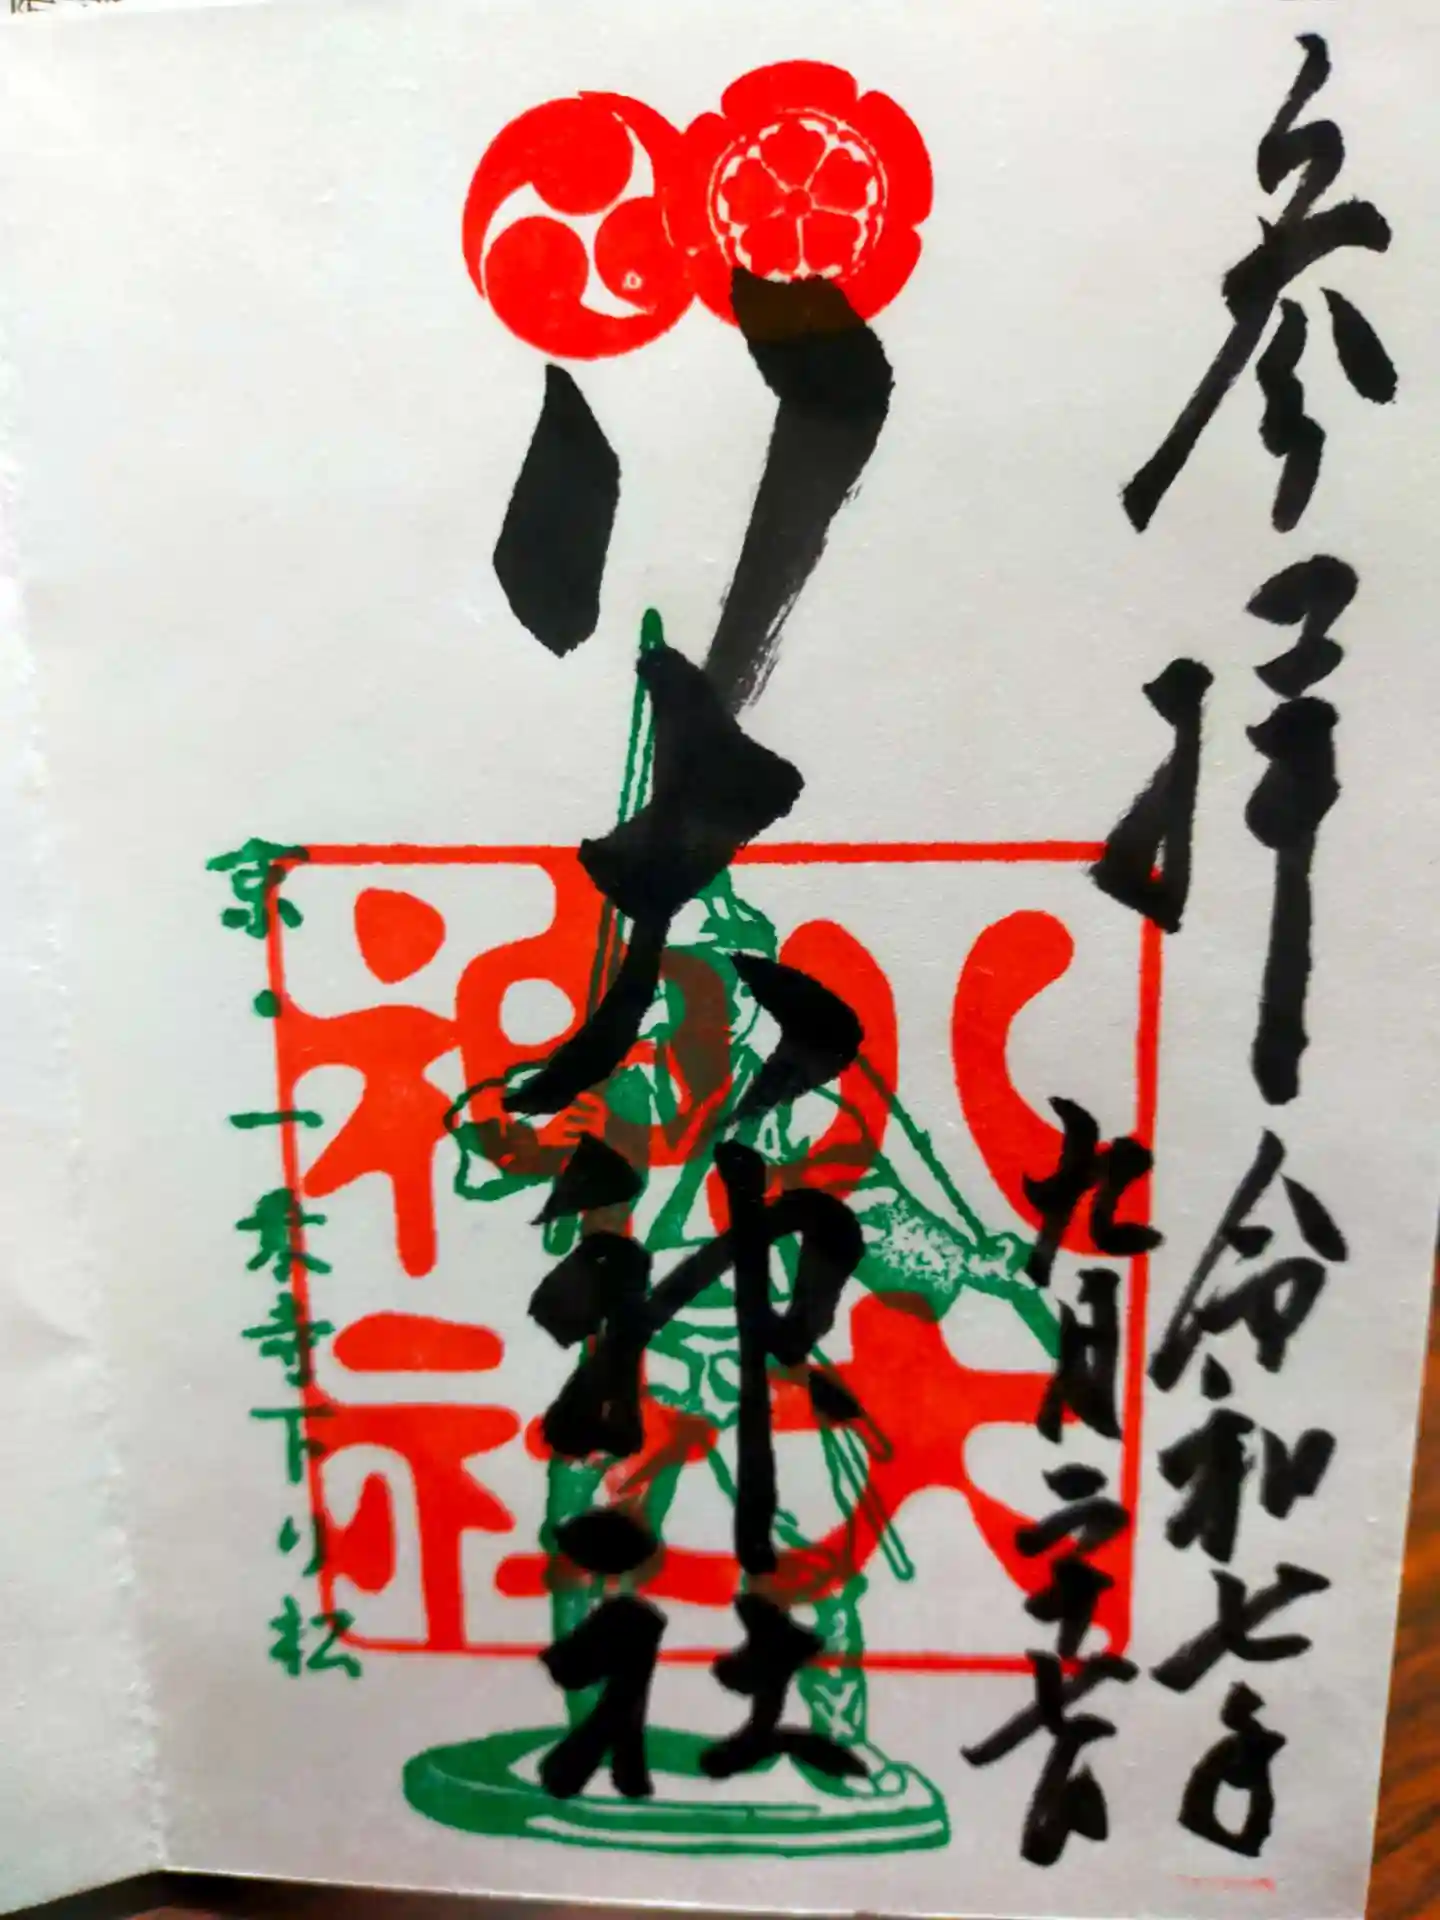 参拝
令和七年
九月二十七日
八大神社
八大神社
京・一乗寺下り松